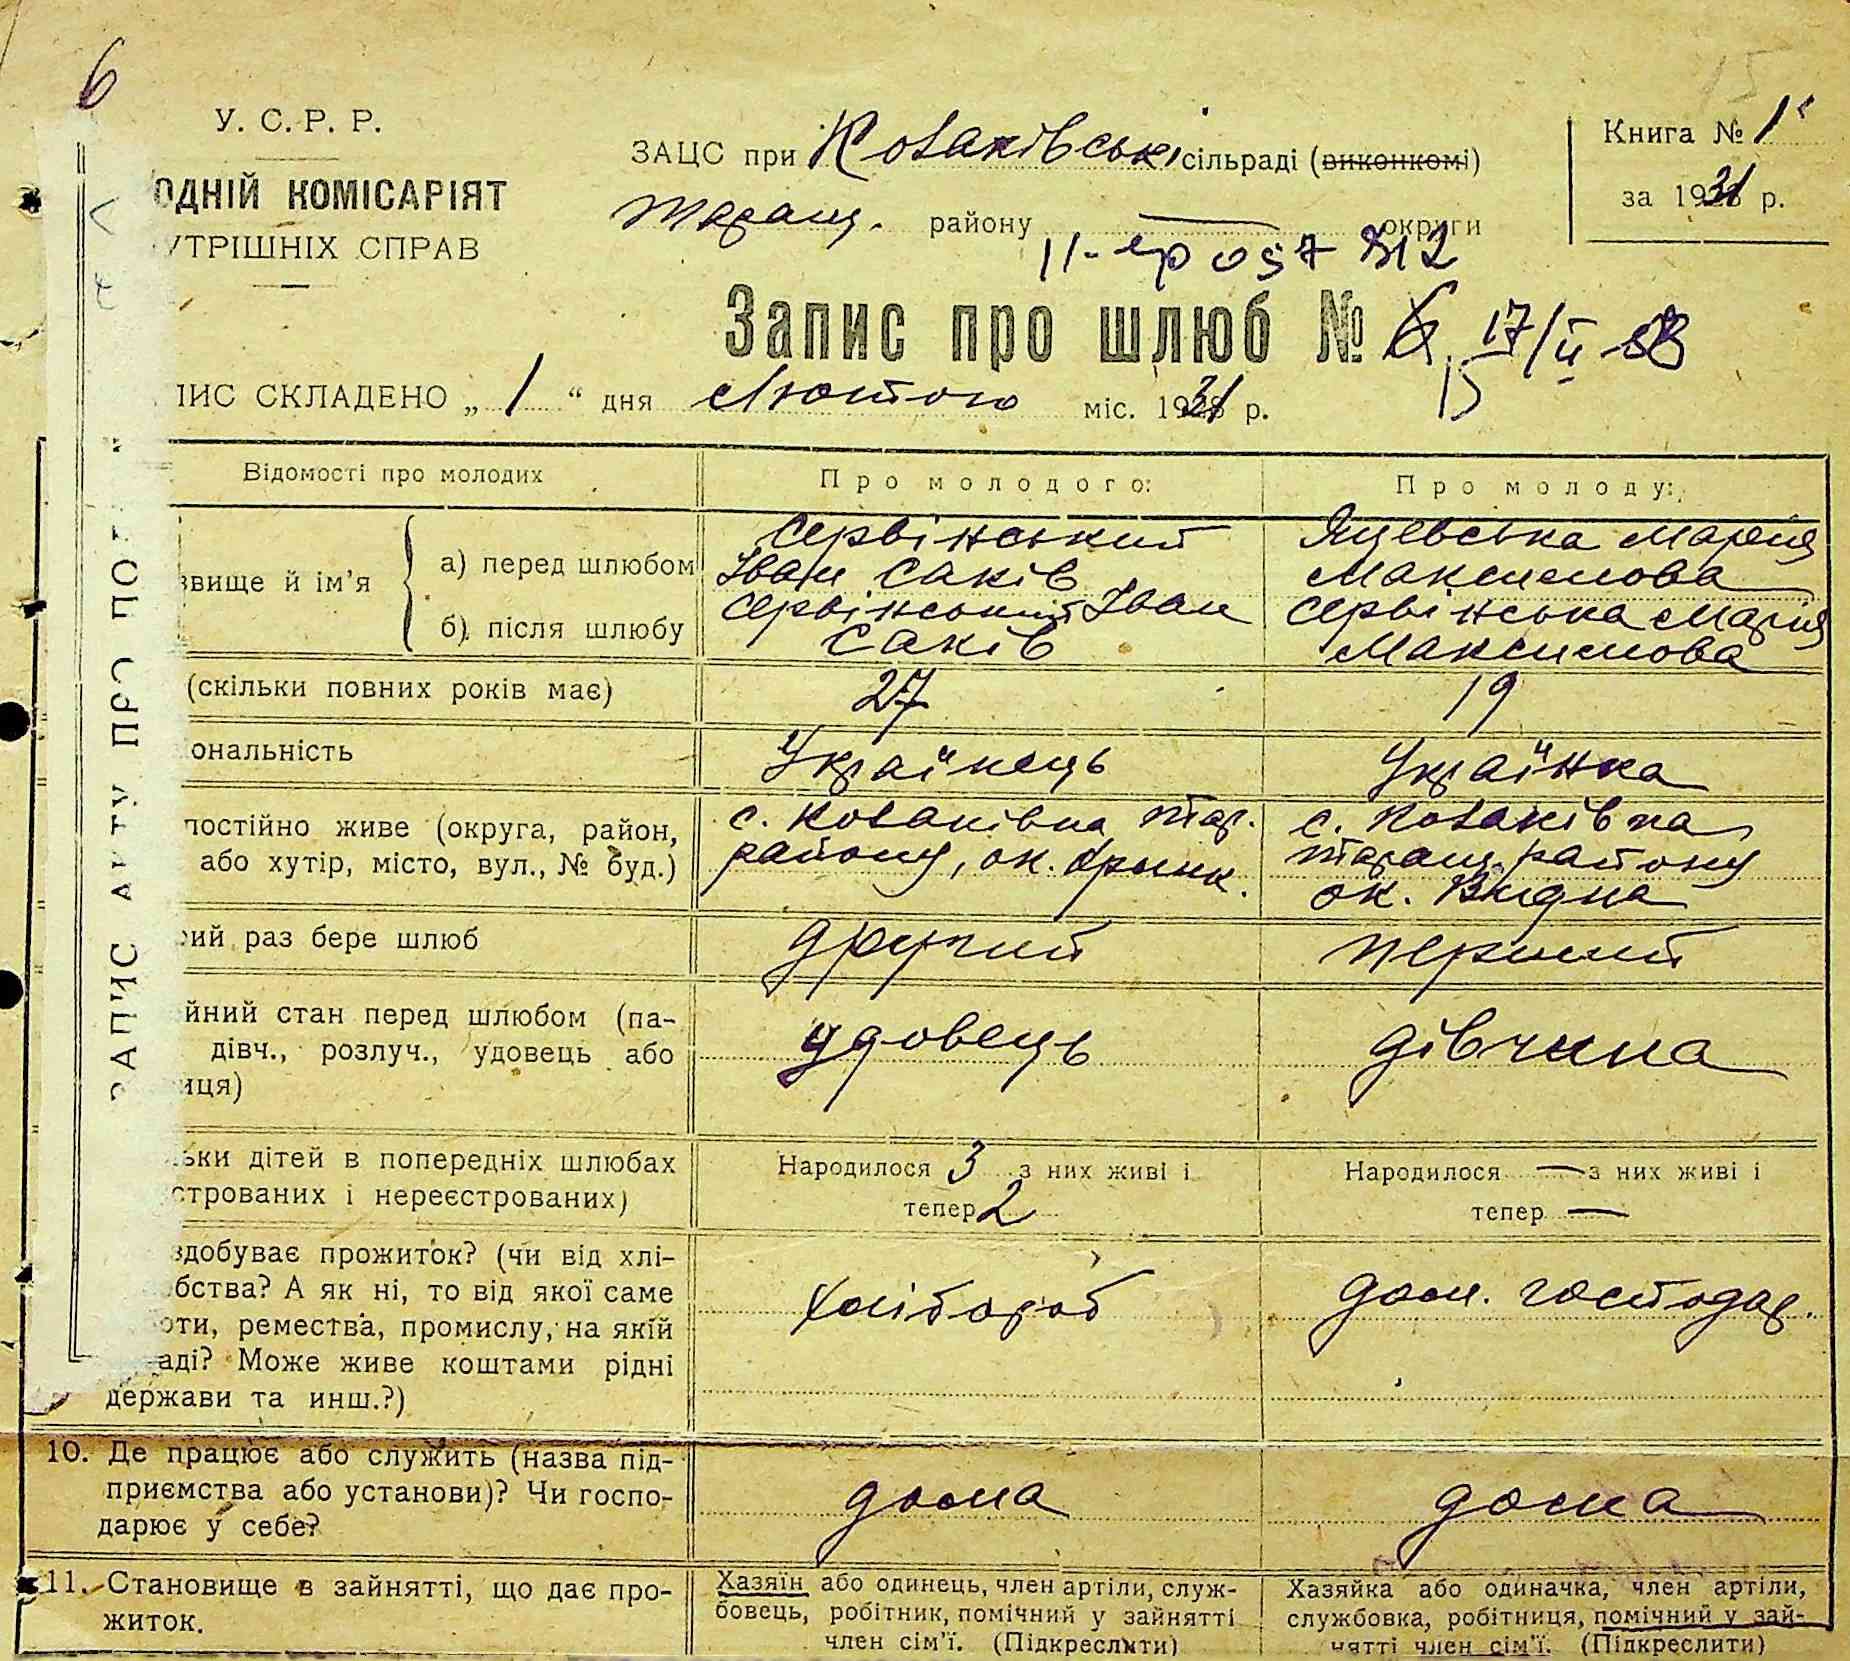 6
15
У. С. Р. Р.
ОДНІЙ КОМІСАРІЯТ
УТРІШНІХ СПРАВ
ЗАЦС при Козаківські сільраді (виконкомі)
Таращ. району — округи
Книга № 1
за 1931 р.
Запис про шлюб № 6
17/II 58
15
ПИС СКЛАДЕНО „ 1 “ дня Лютого міс. 1931 р.
ЗАПИС АКТУ ПРО
Відомості про молодих
Про молодого:
Про молоду:
звище й ім'я
а) перед шлюбом
Сервінський
Іван Саків
Яцевська Марія
Максимова
б) після шлюбу
Сервінський Іван
Саків
Сервінська Марія
Максимова
(скільки повних років має)
27
19
ональність
Українець
Українка
постійно живе (округа, район,
або хутір, місто, вул., № буд.)
с. Козаківка Тар.
району, ок.
с. Козаківка
Таращ. району
ок.
рий раз бере шлюб
другий
перший
йний стан перед шлюбом (па-
дівч., розлуч., удовець або
иця)
удовець
дівчина
ьки дітей в попередніх шлюбах
строваних і нереєстрованих)
Народилося 3 з них живі і
тепер 2
Народилося — з них живі і
тепер —
здобуває прожиток? (чи від хлі-
бства? А як ні, то від якої саме
оти, ремества, промислу, на якій
аді? Може живе коштами рідні
держави та инш.?)
хлібороб
дом. господар.
10. Де працює або служить (назва під-
приємства або установи)? Чи госпо-
дарює у себе?
дома
дома
11. Становище в зайнятті, що дає про-
житок.
Хазяїн або одинець, член артіли, служ-
бовець, робітник, помічний у зайнятті
член сім'ї. (Підкреслити)
Хазяйка або одиначка, член артіли,
службовка, робітниця, помічний у зай-
нятті член сім'ї. (Підкреслити)